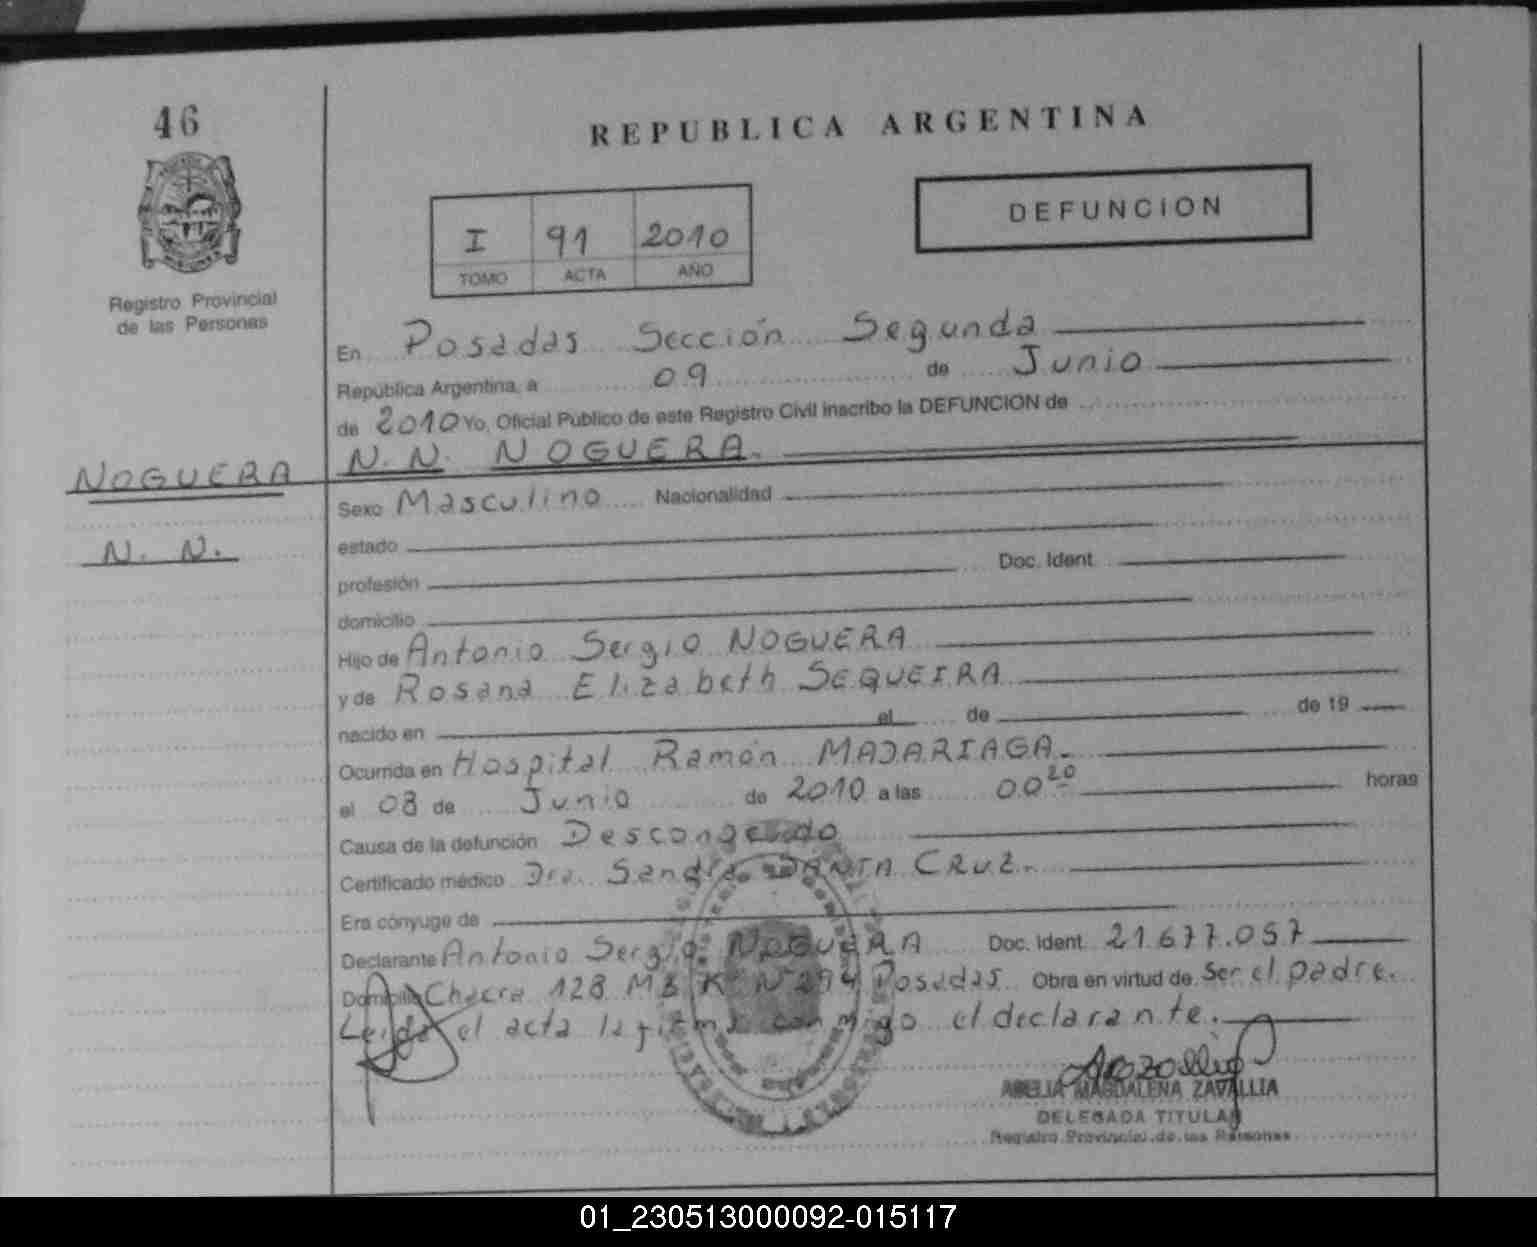 46
REPUBLICA ARGENTINA
DEFUNCION
I 91 2010
TOMO ACTA AÑO
Registro Provincial
de las Personas
En Posadas Sección Segunda
República Argentina, a 09 de Junio
de 2010 Yo, Oficial Público de este Registro Civil inscribo la DEFUNCION de
N.N. NOGUERA.
NOGUERA
N. N.
Sexo Masculino Nacionalidad
estado
profesión Doc. Ident.
domicilio
Hijo de Antonio Sergio NOGUERA
y de Rosana Elizabeth SEQUEIRA
nacido en el de de 19
Ocurrida en Hospital Ramón MADARIAGA.
el 08 de Junio de 2010 a las 00 20 horas
Causa de la defunción Descongelado
Certificado médico Dra. Sandra SANTA CRUZ.
Era cónyuge de
Declarante Antonio Sergio NOGUERA Doc. Ident. 21.677.057
Domicilio Chacra 128 Mz K N° 294 Posadas. Obra en virtud de Ser el padre.
Leída el acta la firma conmigo el declarante.
MAGDALENA ZAVALLIA
DELEGADA TITULAR
Registro Provincial de las Personas
01_230513000092-015117